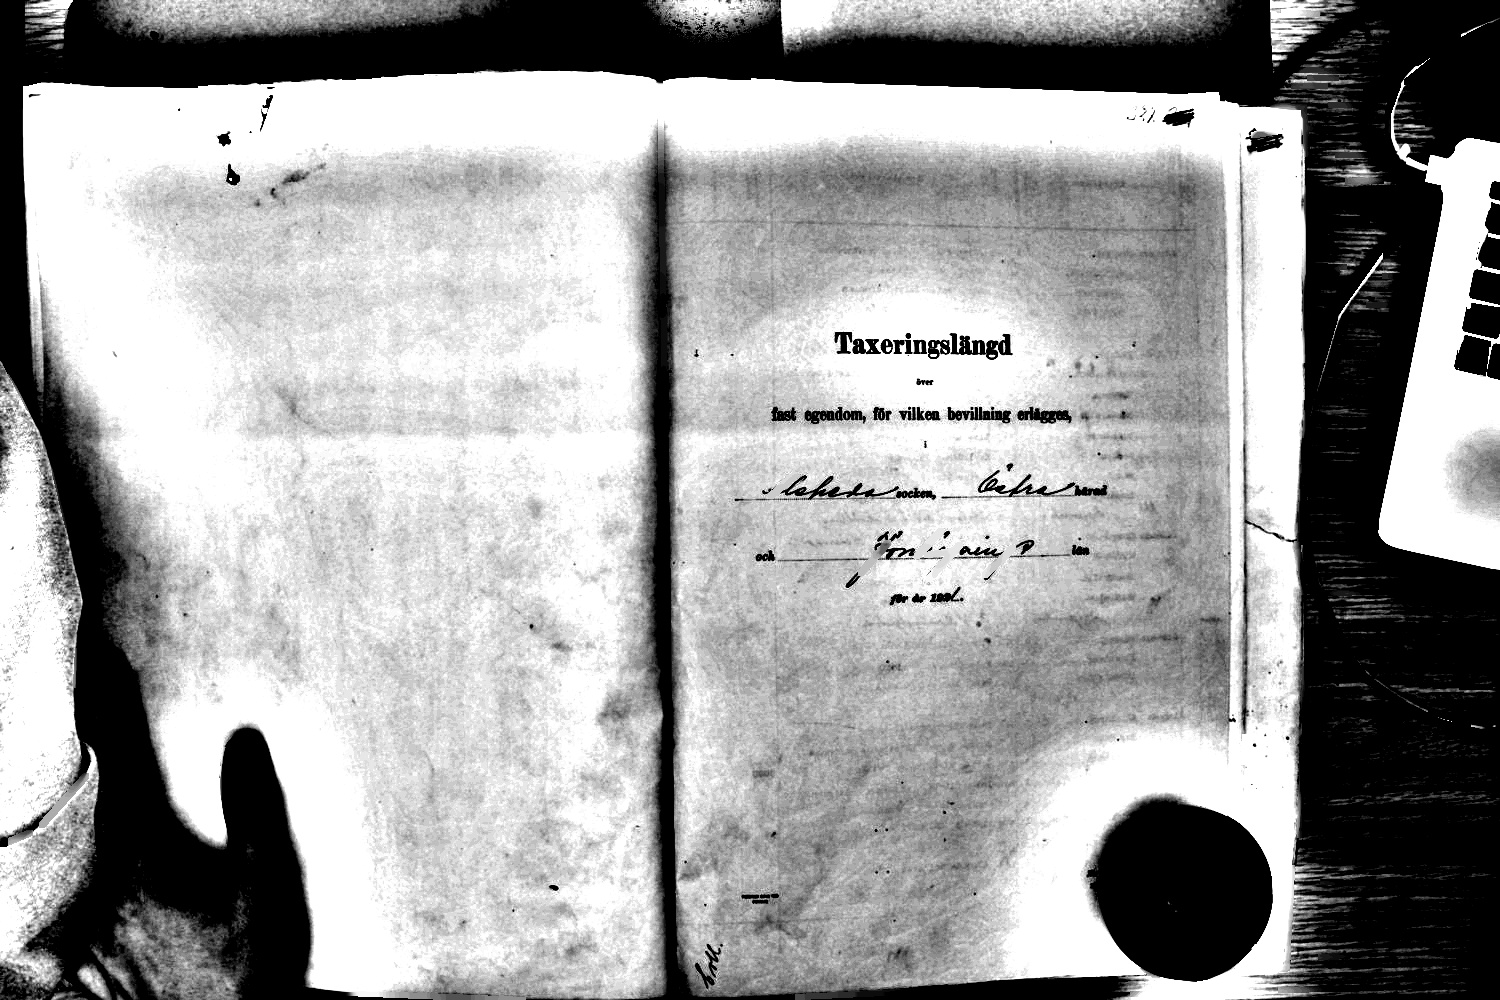 Taxeringslängd
över
fast egendom, för vilken bevillning erlägges,
i
Alseda socken, Östra härad
och Jönköpings län
för år 192